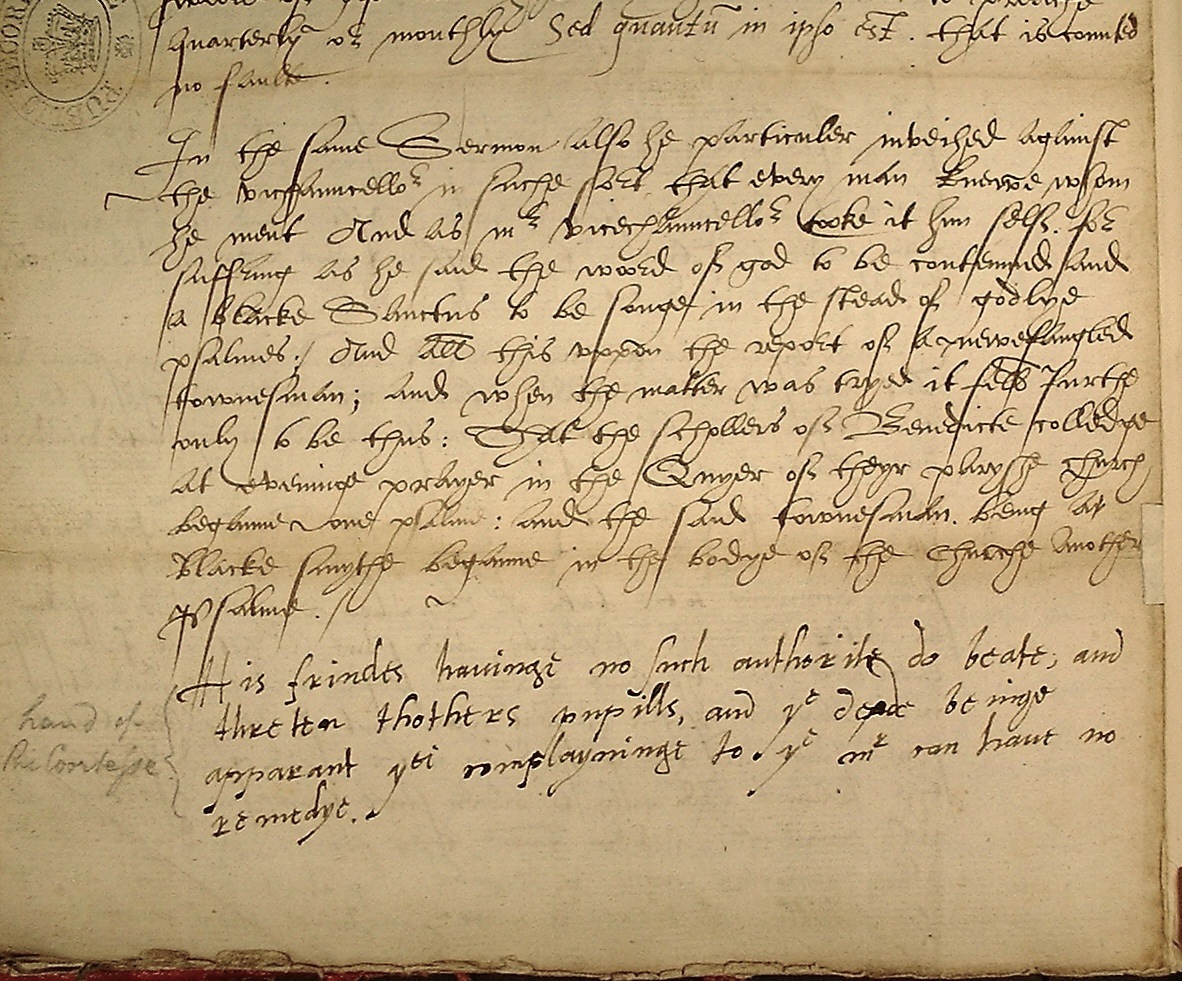 to preache
quarterly or monthly Sed quantū in ipso est. that is counted
no faulte.
In the same Sermon also he particuler inveihed against
the vicchauncellor in suche sort that every man knewe whom
he ment And as mr vicechauncellor tooke it him self. for
suffring as he said the word of god to be contemned and
a blacke Sanctus to be songe in the stead of godlye
psalmes; And all this uppon the report of a newefangled
townesman; and when the matter was tryed it fell furthe
only to be thus: That the schollers of Benedicte colledge
at eveninge prayer in the Quyer of theyr paryshe church,
beganne one psalme: and the said townesman. being a
Blacke smythe beganne in the bodye of the Churche Another
Psalme.
His frindes havinge no such authoritie do beate, and
threten thothers pupills, and ye dede beinge
apparant yei complayninge to ye mr can have no
remedye.
hand of
PUBLIC RECORD